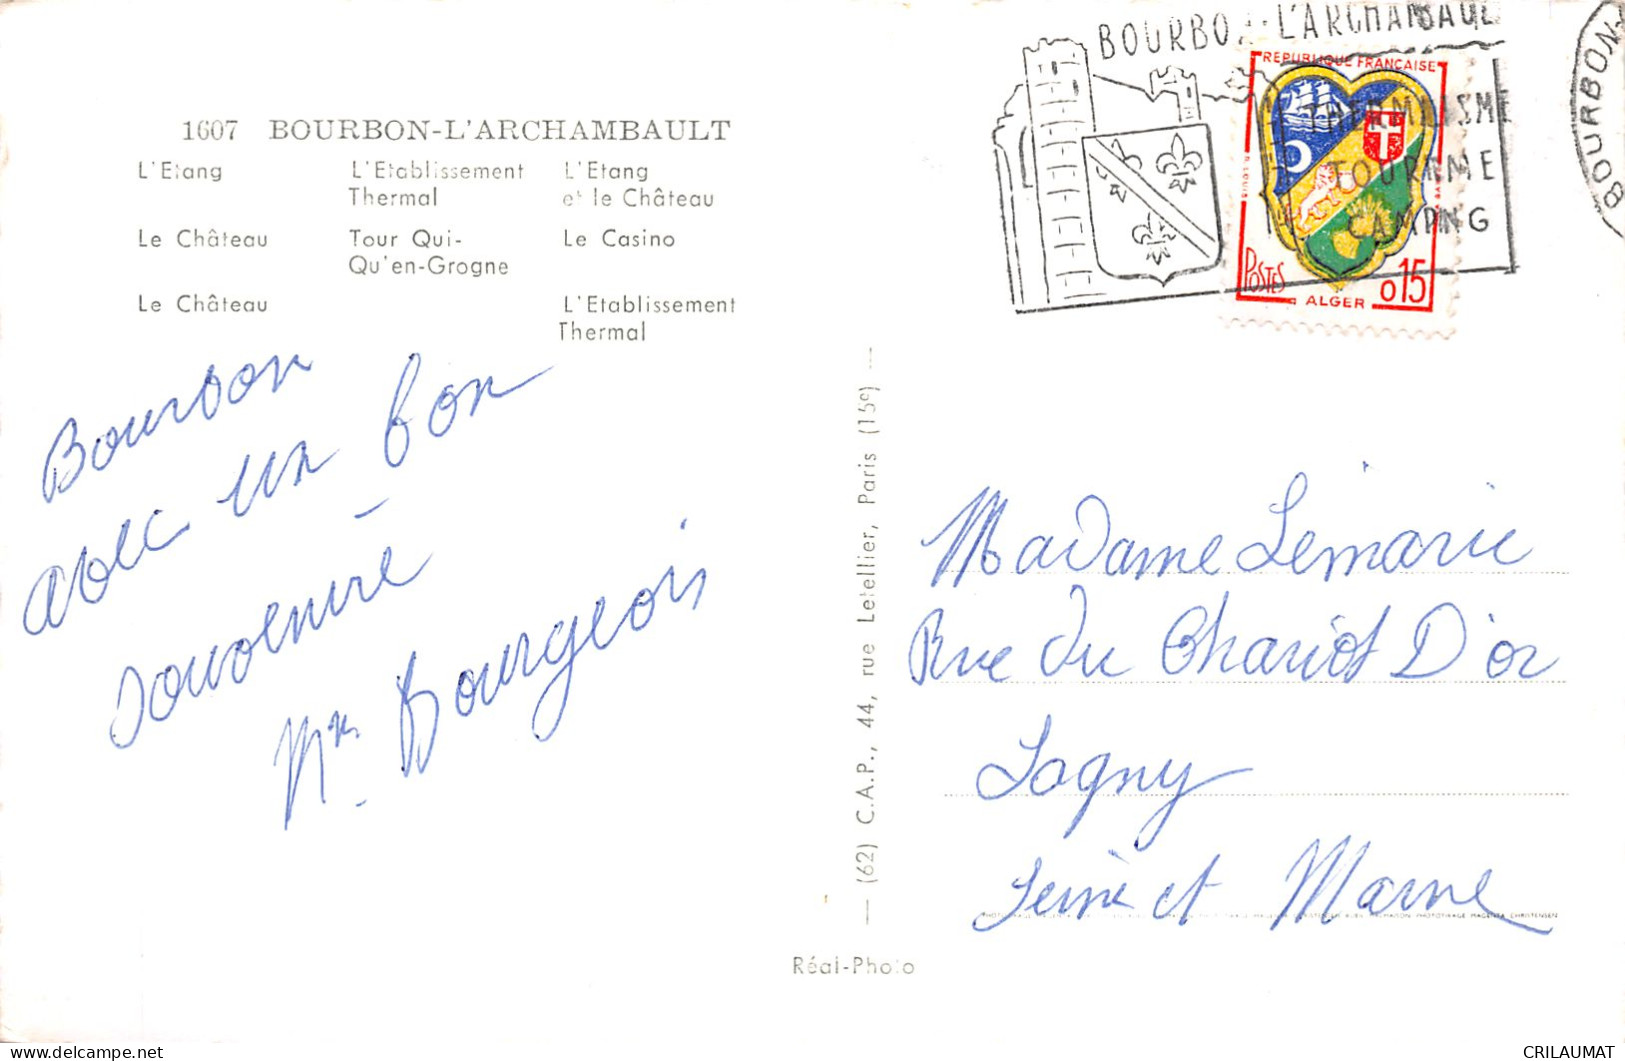 1607 BOURBON-L'ARCHAMBAULT
L'Etang
L'Etablissement
Thermal
L'Etang
et le Château
Le Château
Tour Qui-
Qu'en-Grogne
Le Casino
Le Château
L'Etablissement
Thermal
Bourbon
avec un bon
souvenir
Mme Bourgeois
— (62) C.A.P., 44, rue Letellier, Paris (15e) —
Réal-Photo
BOURBON-L'ARCHAMBAUL
THERMALISME
TOURISME
CAMPING
BOURBON-
REPUBLIQUE FRANÇAISE
POSTES
ALGER
0,15
Madame Lemarie
Rue du Chariot D'or
Lagny
Seine et Marne
CRILAUMAT